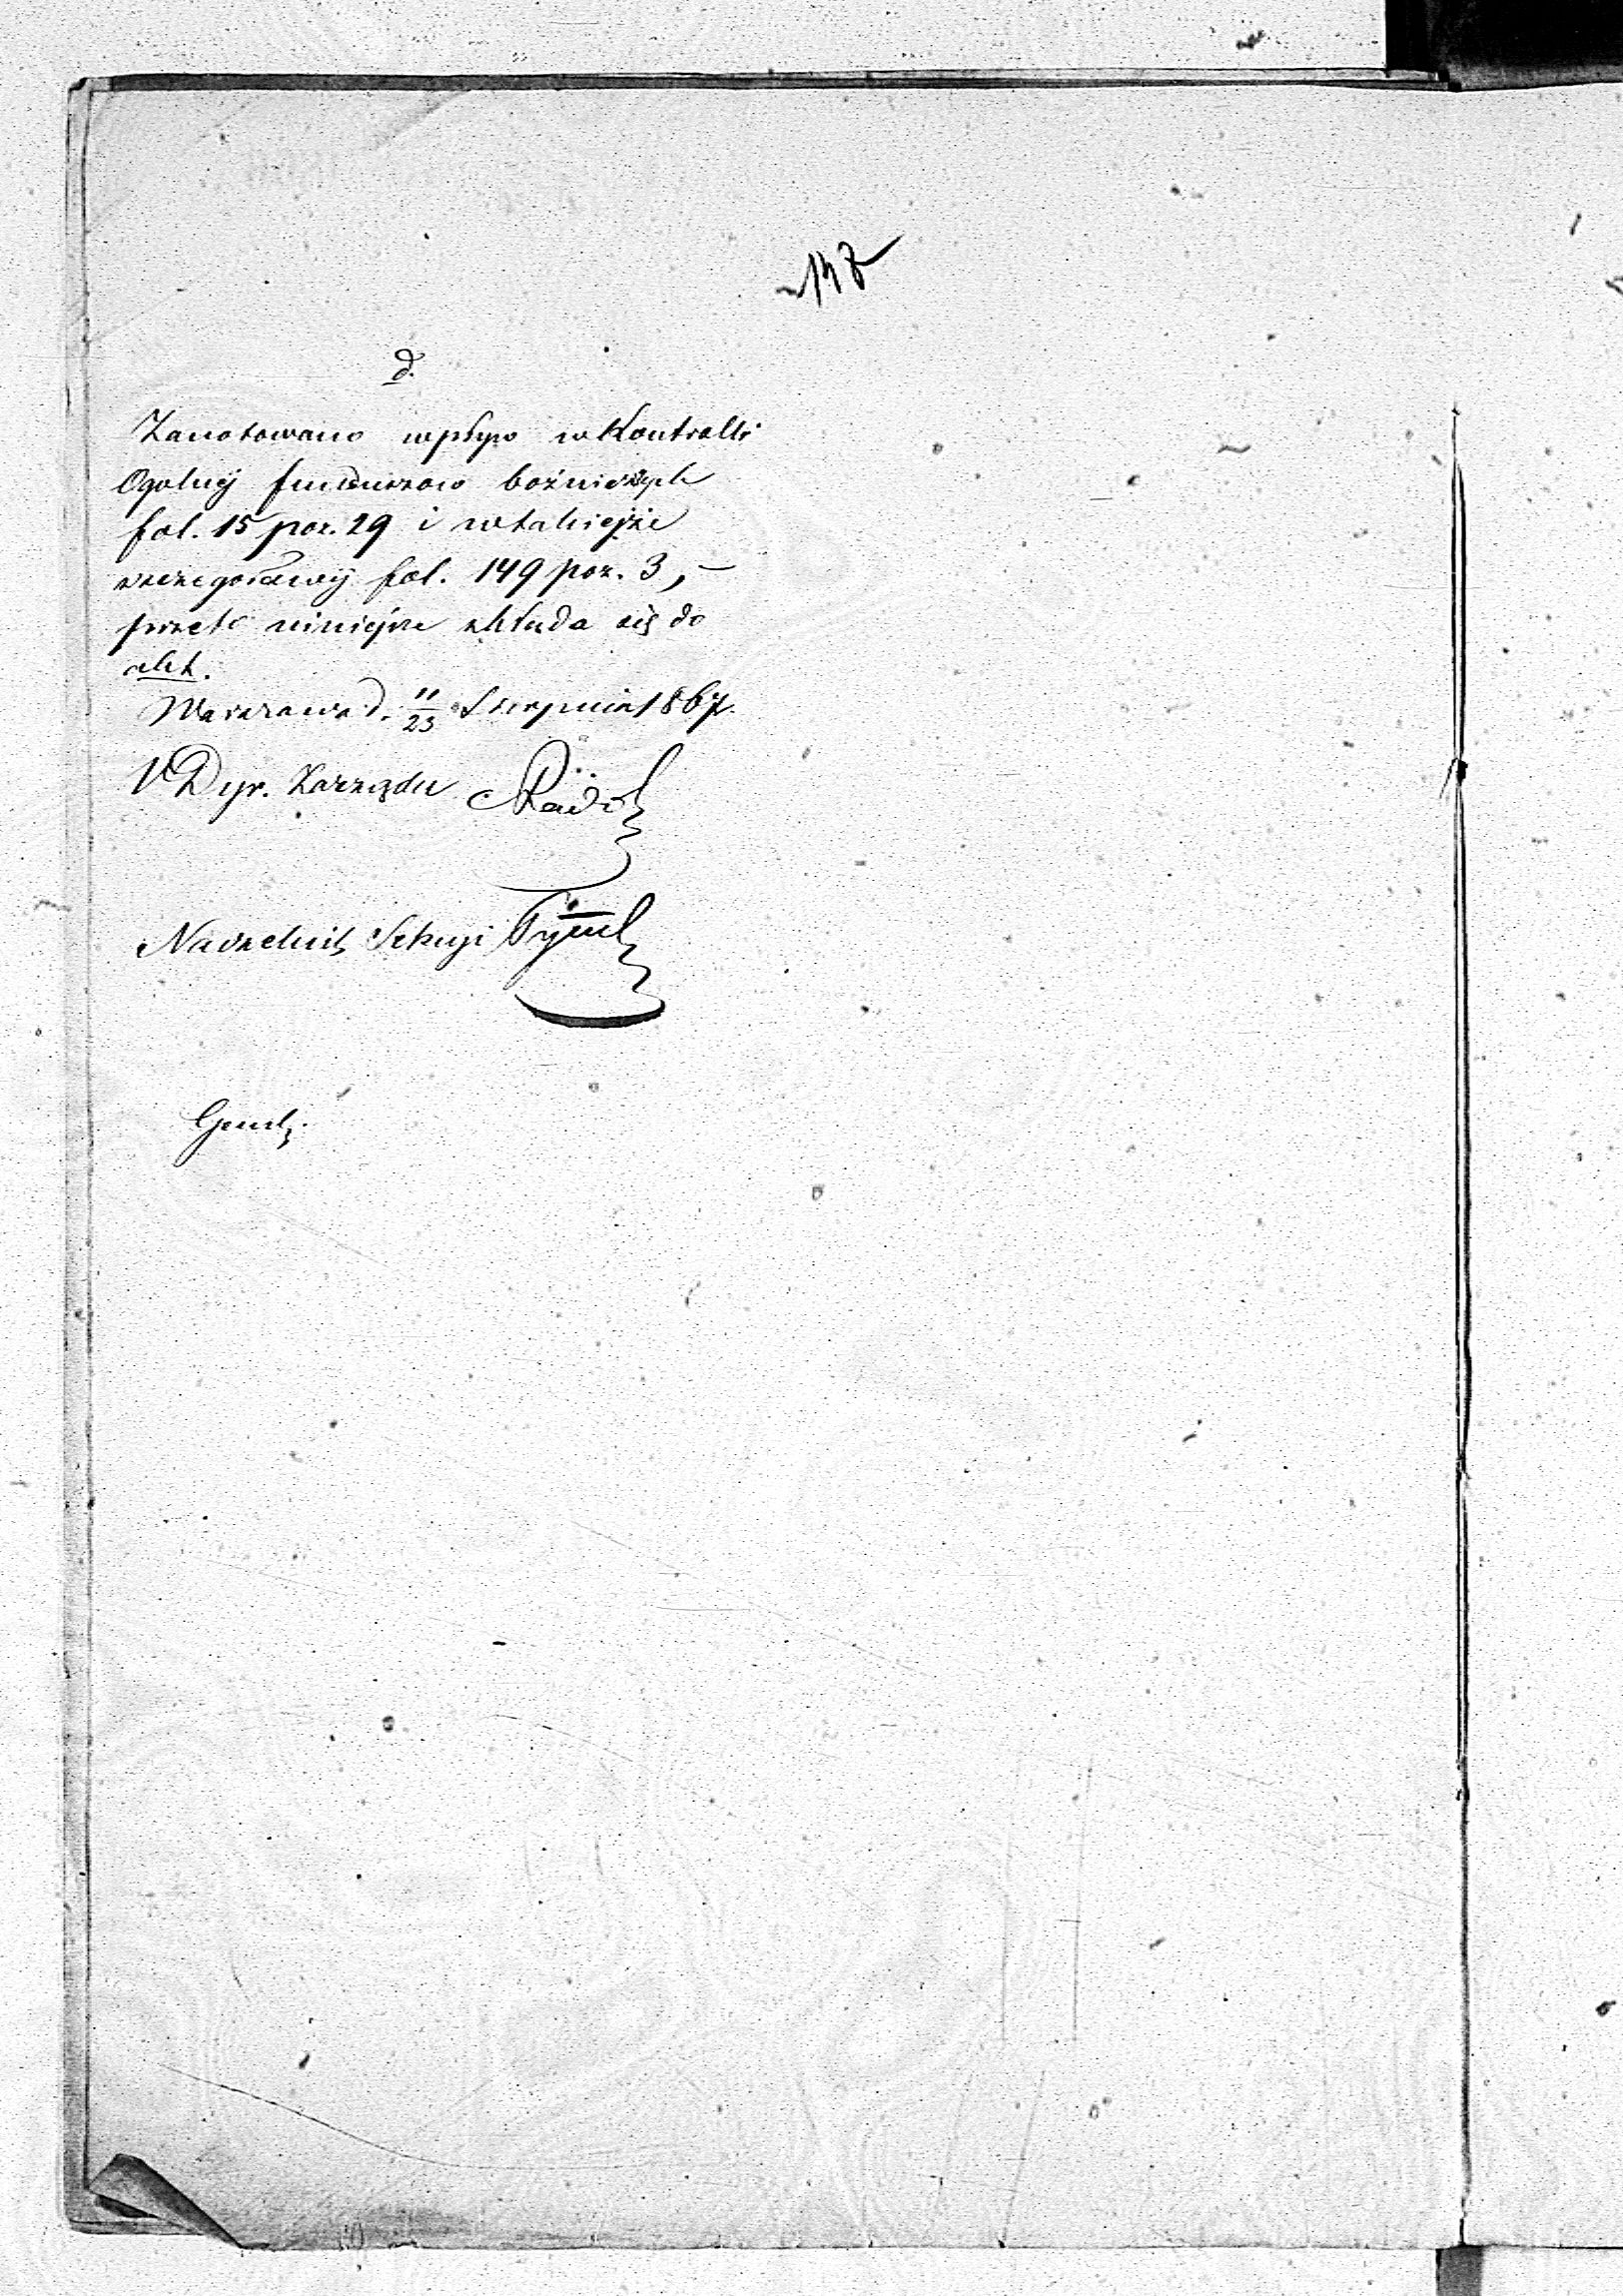 147
d.
Zanotowano wpływ w Kontrolli
Ogolnéj funduszow bożniczych
fol. 15 poz. 29 i w takiejże
szczegołowéj fol. 149 poz. 3, —
przeto niniejsze składa się do
akt.
Warszawa d. 11/23 Sierpnia 1867.
Dyr. Zarządu
Naczelnik Sekcyi